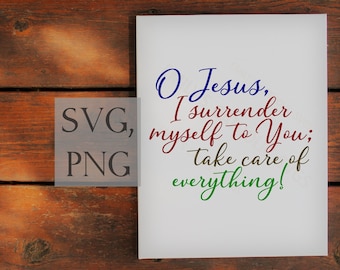 SVG,
PNG
O Jesus,
I surrender
myself to You;
take care of
everything!